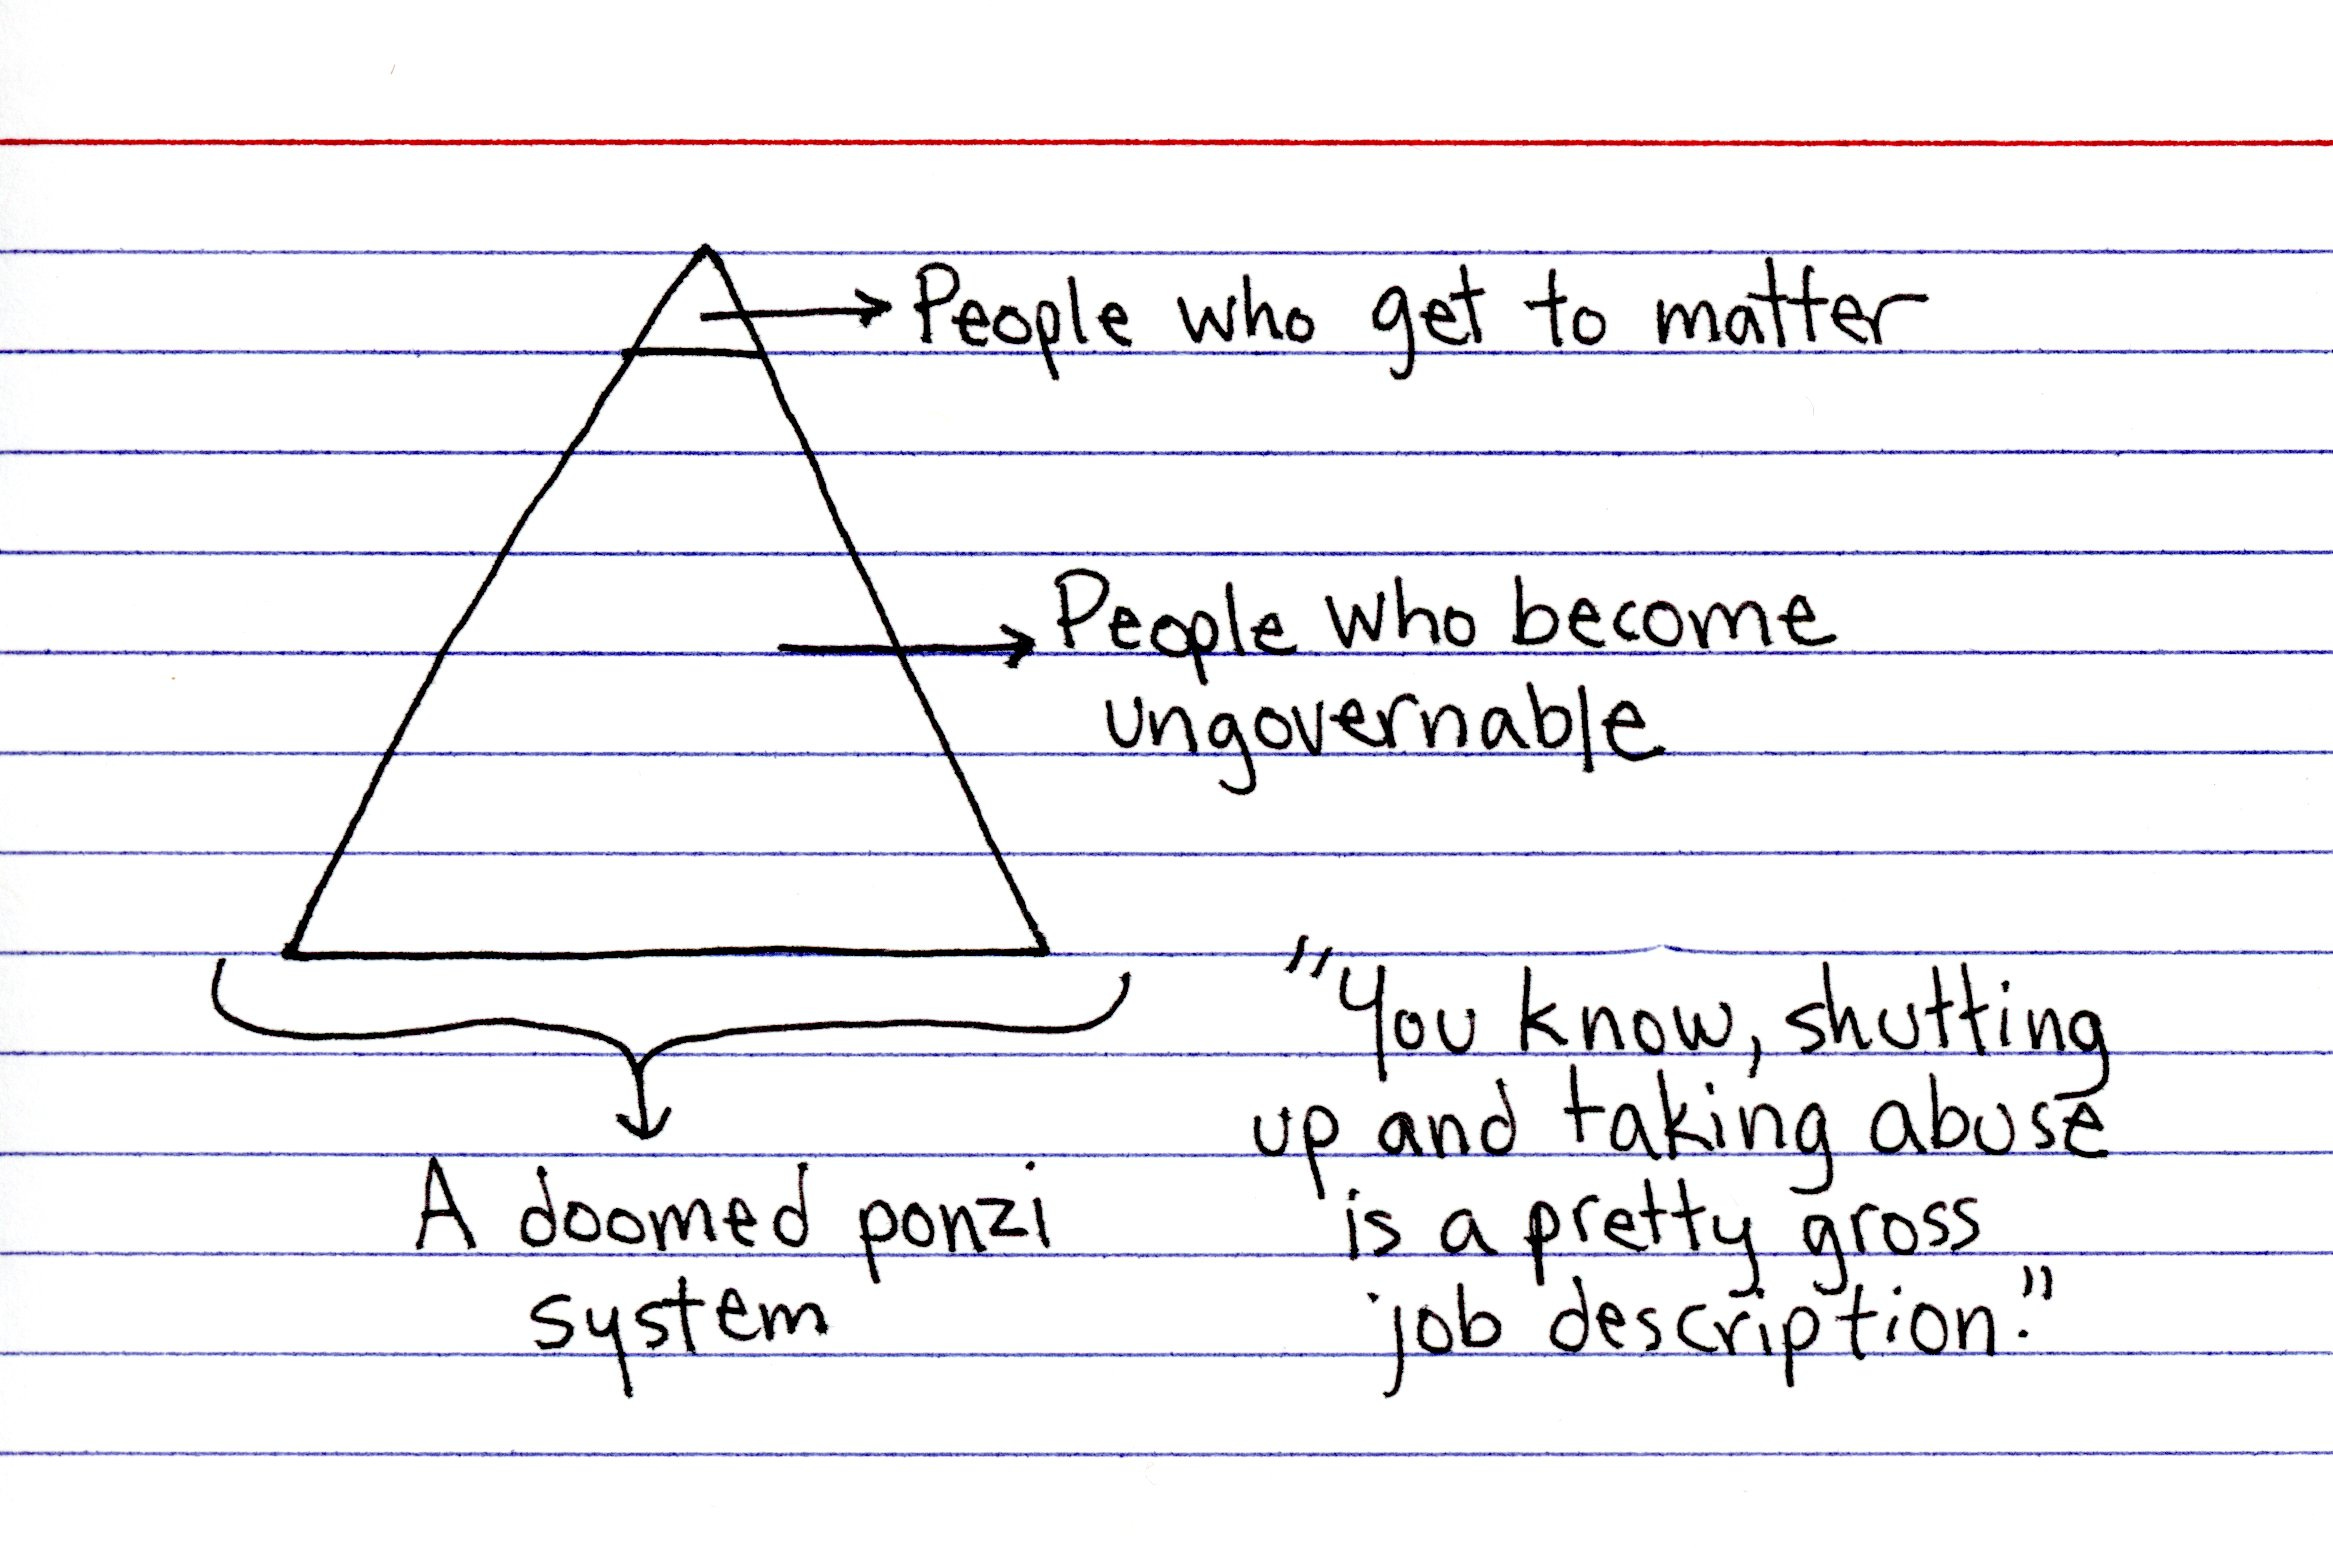 People who get to matter
People who become
ungovernable
A doomed ponzi
system
"You know, shutting
up and taking abuse
is a pretty gross
job description."